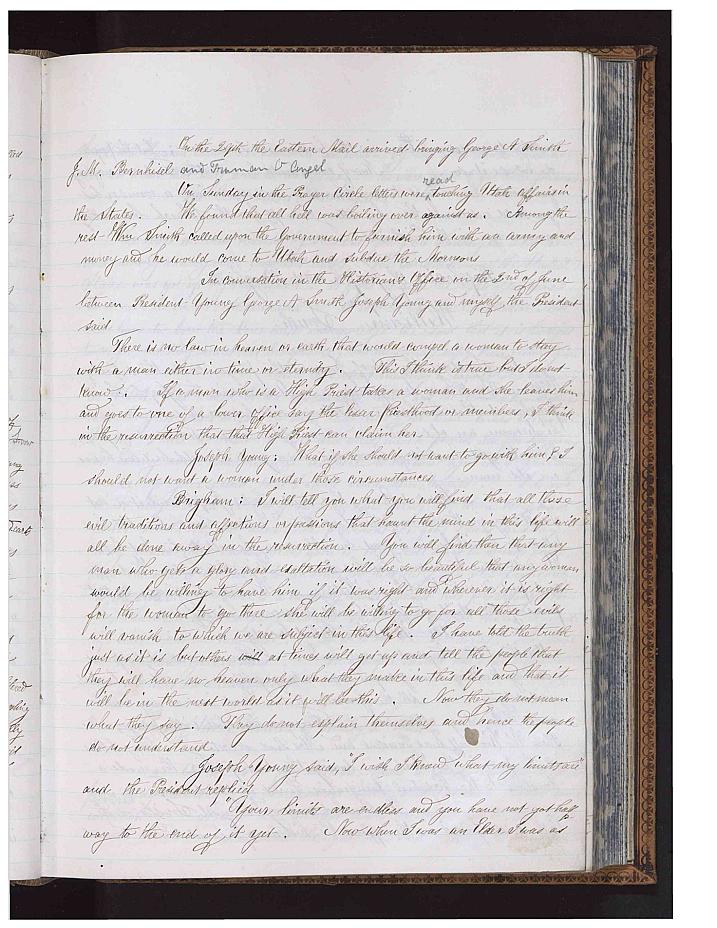 On the 29th the Eastern Mail arrived bringing George A Smith
J. M. Bernhisel and Truman O Angel
On Sunday in the Prayer Circle letters were read touching Utah affairs in
the States. We found that all hell was boiling over against us. Among the
rest Wm Smith called upon the Government to furnish him with an army and
money and he would come to Utah and subdue the Mormons
In conversation in the Historian's Office on the 2nd of June
between President Young George A Smith Joseph Young and myself the President
said
There is no law in heaven or earth that would compel a woman to stay
with a man either in time or eternity. This I think is true but I do not
know. If a man who is a High Priest takes a woman and she leaves him
and goes to one of a lower office say the lesser Priesthood or members, I think
in the resurrection that that High Priest can claim her
Joseph Young: What if she should not want to go with him? I
should not want a woman under those circumstances
Brigham: I will tell you what you will find that all those
evil traditions and affections or passions that haunt the mind in this life will
all be done away in the resurrection. You will find then that any
man who gets a glory and exaltation will be so beautiful that any woman
would be willing to have him if it was right and wherever it is right
for the woman to go there she will be willing to go for all those evils
will vanish to which we are subject in this life. I have told the truth
just as it is but others will at times will get up and tell the people that
they will have no heaven only what they make in this life and that it
will be in the next world as it will be this. Now they do not mean
what they say. They do not explain themselves and hence the people
do not understand
Joseph Young said, "I wish I knew what my limits are"
and the President replied
"Your limits are endless and you have not got half
way to the end of it yet. Now when I was an Elder I was as